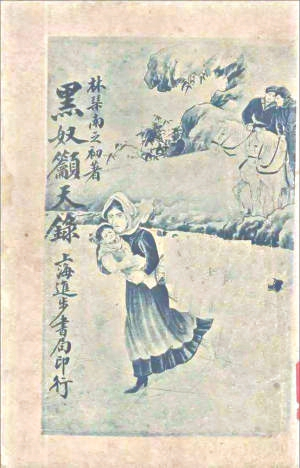 林琴南之初著
黑奴籲天錄
上海進步書局印行